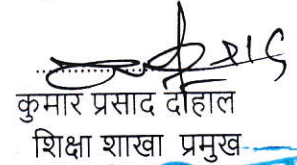 कुमार प्रसाद दाहाल
शिक्षा शाखा प्रमुख